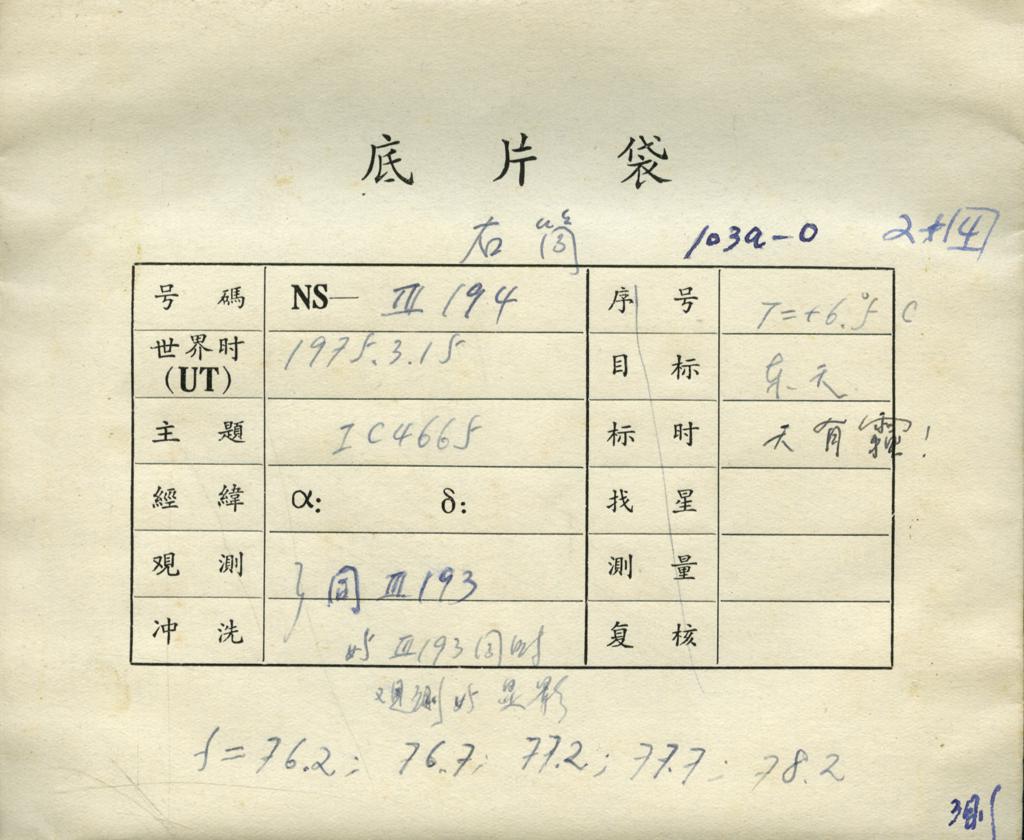 底片袋
右筒 103a-O
号碼 NS— III 194 序号 T=+6.°5 C
世界时(UT) 1975.3.15 目标 东天
主題 IC4665 标时 天有霾!
經緯 α: δ: 找星
观測 同 III 193 測量
冲洗 III 193 同时 复核
观测 显影
f=76.2; 76.7; 77.2; 77.7; 78.2
测